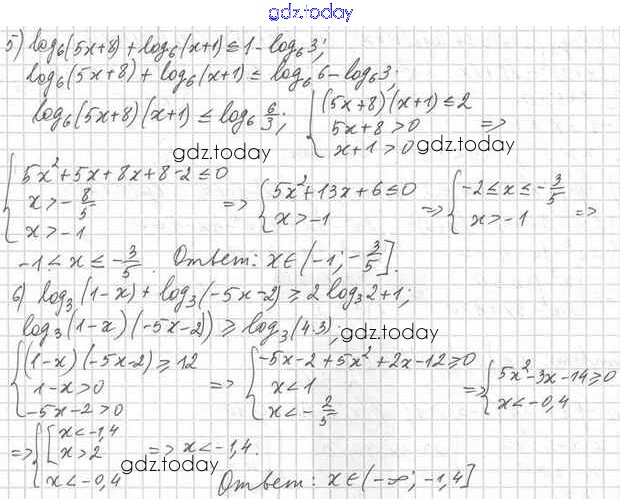 gdz.today
5) log₆(5x+8)+log₆(x+1)≤1-log₆3;
log₆(5x+8)+log₆(x+1)≤log₆6-log₆3;
log₆(5x+8)(x+1)≤log₆ 6/3; { (5x+8)(x+1)≤2
5x+8>0 =>
x+1>0
gdz.today gdz.today
{ 5x²+5x+8x+8-2≤0
x>-8/5
x>-1
=> { 5x²+13x+6≤0
x>-1
=> { -2≤x≤-3/5
x>-1 =>
gdz.today gdz.today
-1<x≤-3/5. Ответ: x∈(-1;-3/5].
6) log₃(1-x)+log₃(-5x-2)≥2log₃2+1;
log₃(1-x)(-5x-2)≥log₃(4·3);
gdz.today gdz.today
{ (1-x)(-5x-2)≥12
1-x>0
-5x-2>0
=> { -5x-2+5x²+2x-12≥0
x<1
x<-2/5
=> { 5x²-3x-14≥0
x<-0,4
=> { [ x<-1,4
x>2
x<-0,4
=> x<-1,4.
gdz.today gdz.today
Ответ: x∈(-∞;-1,4]